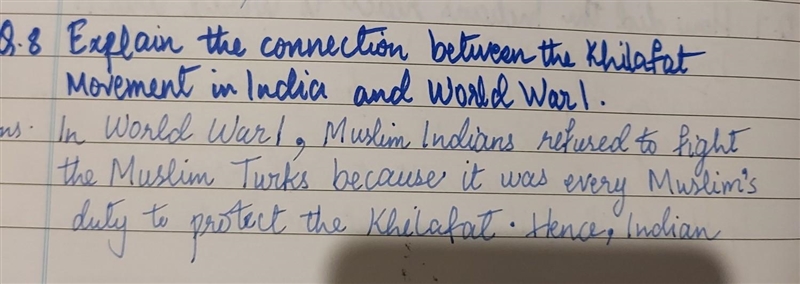 Q.8 Explain the connection between the Khilafat
Movement in India and World War 1.
ns. In World War 1, Muslim Indians refused to fight
the Muslim Turks because it was every Muslim's
duty to protect the Khilafat. Hence, Indian